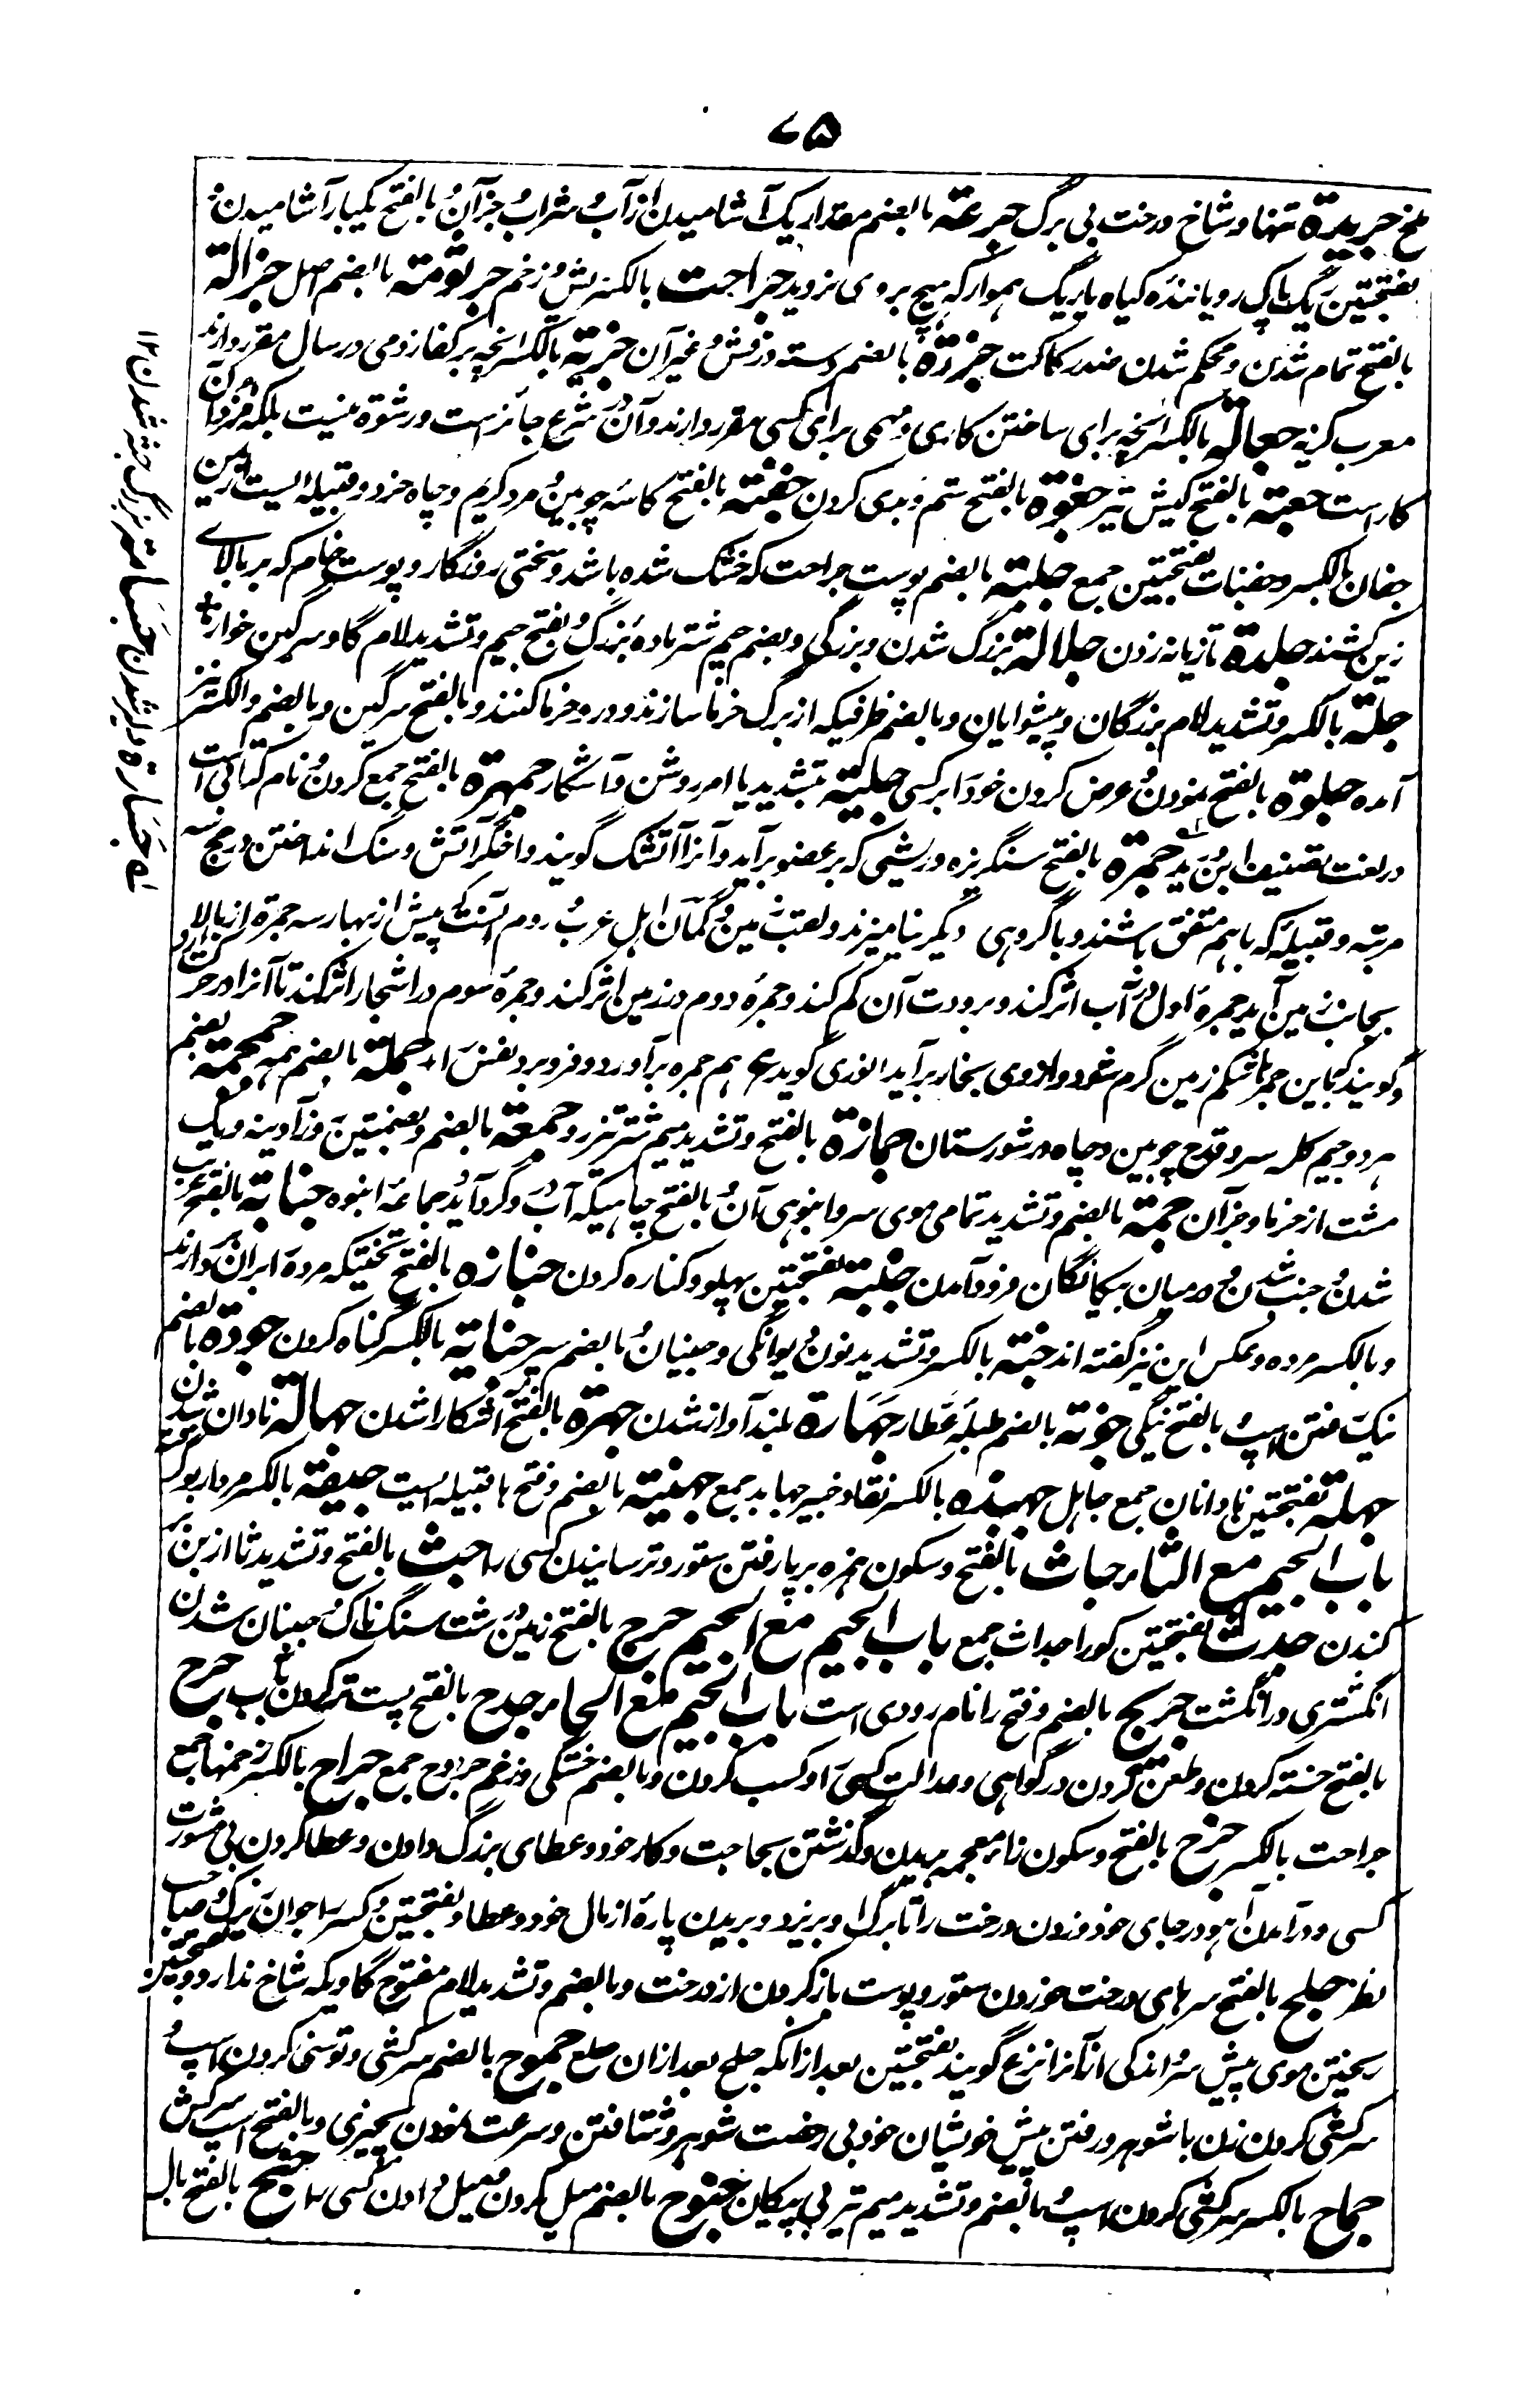 ۷۵
ملخ جریدة تنها و شاخ درخت بی برگ جرعة بالضم مقدار یک آشامیدن از آب و شراب و جز آن و بالفتح یکبار آشامیدن و
بفتحتین ریگ پاک رویاننده گیاه یا ریگ هموار که هیچ بروی نروید جراحت بالکسر ریش و زخم جرثومة بالضم اصل جزالة
بالفتح تمام شدن و محکم شدن ضد رکاکت جزة بالضم دسته درفش و غیر آن جزیة بالکسر آنچه بر کفار ذمی در سال مقرر دارند
معرب گزیه جعالة بالکسر آنچه برای ساختن کاری و مهمی برای کسی مقرر دارند و آن در شرع جائز است و رشوة نیست بلکه مزد آن
کار است جعبة بالفتح کیش تیر جفوة بالفتح ستم و بدی کردن جفنة بالفتح کاسه چوبین و مرد کریم و چاه خرد و قبیله ایست از یمن
جفان بالکسر و جفنات بفتحتین جمع جلبة بالضم پوست جراحت که خشک شده باشد و سختی روزگار و پوست خام که بر بالای
زین کشند جلدة تازیانه زدن جلالة بزرگ شدن و بزرگی و بضم جیم شتر ماده بزرگ و بفتح جیم و تشدید لام گاو سرگین خوار
جلة بالکسر و تشدید لام بزرگان و پیشوایان و بالضم ظرفیکه از برگ خرما سازند و درو خرما کنند و بالفتح سرگین و بالضم و الکسر نیز
آمده جلوة بالفتح نمودن و عرض کردن خود را بر کسی جلیة بتشدید یا امر روشن و آشکار جمهرة بالفتح جمع کردن و نام کتابی است
در لغت تصنیف ابن درید جمرة بالفتح سنگریزه و ریشی که بر عضو برآید و آنرا آتشک گویند و اخگر آتش و سنگ انداختن در حج سه
مرتبه و قبیله که باهم متفق باشند و با گروهی دیگر نیامیزند و لقب زمین و گمان اهل عرب و روم آنست که پیش از بهار سه جمرة از بالا
بجانب زمین آید جمرهٔ اول در آب اثر کند و برودت آن کم کند و جمرهٔ دوم در زمین اثر کند و جمرهٔ سوم در اشجار اثر کند تا آنرا در حرکت آرد
و گویند که باین جمرها شکم زمین گرم شود و از وی بخار برآید انوری گوید ع هم جمره برآورد و فرو برد نفس را جملة بالضم همه جمجمة بضم
هر دو جیم کله سر و قدح چوبین و چاه در شورستان جمازة بالفتح و تشدید میم شتر تیزرو جمعة بالضم و بضمتین روز آدینه و یک
مشت از خرما و جز آن جمة بالضم و تشدید تمامی موی سر و انبوهی آن و بالفتح چاهیکه آب درو گرد آید و جماعه انبوه جنابة بالفتح غریب
شدن و جنب شدن و درمیان بیگانگان فرود آمدن جنبة بفتحتین پهلو و کناره کردن جنازه بالفتح تختیکه مرده را بران بردارند
و بالکسر مرده و عکس این نیز گفته اند جنة بالکسر و تشدید نون دیوانگی و جنیان و بالضم سپر جنایة بالکسر گناه کردن جودة بالضم
نیک رفتن اسپ و بالفتح نیکی جونة بالضم طبله عطار جهارة بلند آواز شدن جهرة بالفتح آشکارا شدن جهالة نادان شدن
جهلة بفتحتین نادانان جمع جاهل جهبذه بالکسر نقاد و خبیر جهابذ جمع جهنیة بالضم و فتح ها قبیله ایست جیفة بالکسر مردار بو گرفته
باب الجیم مع الثاء جباث بالفتح و سکون همزه بر پا رفتن ستور و ترسانیدن کسی را جث بالفتح و تشدید ثا از بن بر
کندن جدث بفتحتین گور اجداث جمع باب الجیم مع الجیم جرج بالفتح زمین درشت سنگناک و جنبان شدن
انگشتری در انگشت جریج بالضم و فتح را نام رودی است باب الجیم مع الحاء جدح بالفتح پست تر کردن بآب جرح
بالفتح خسته کردن و طعن کردن در گواهی و عدالت کسی را و کسب کردن و بالضم خستگی و زخم جروح جمع جراح بالکسر زخمها جمع
جراحت بالکسر جزح بالفتح و سکون زاء معجمه بریدن و گذشتن بحاجت و کار خود و عطای بزرگ دادن و عطا کردن بی مشورت
کسی و درآمدن آهو در جای خود و زدن درخت را تا برگ او بریزد و بریدن پارهٔ از مال خود و عطا و بفتحتین و کسر را جوان بزرگ و صاحب
نظر جلح بالفتح سرهای درخت خوردن ستور و پوست باز کردن از درخت و بالضم و تشدید لام مفتوح گاویکه شاخ ندارد و بفتحتین
ریختن موی پیش سر و اندکی آنرا نزع گویند بفتحتین بعد ازانکه جلح بعد ازان صلع جموح بالضم سرکشی و توسنی کردن اسپ و
سرکشی کردن زن با شوهر و رفتن پیش خویشان خود بی رخصت شوهر و شتافتن و سرعت نمودن بچیزی و بالفتح اسپ سرکش
جماح بالکسر سرکشی کردن اسپ و بالضم و تشدید میم تیر بی پیکان جنوح بالضم میل کردن و میل دادن کسی را جنح بالفتح بال
له جسارة دلیر شدن جسامة بزرگ جثه شدن ۱۲